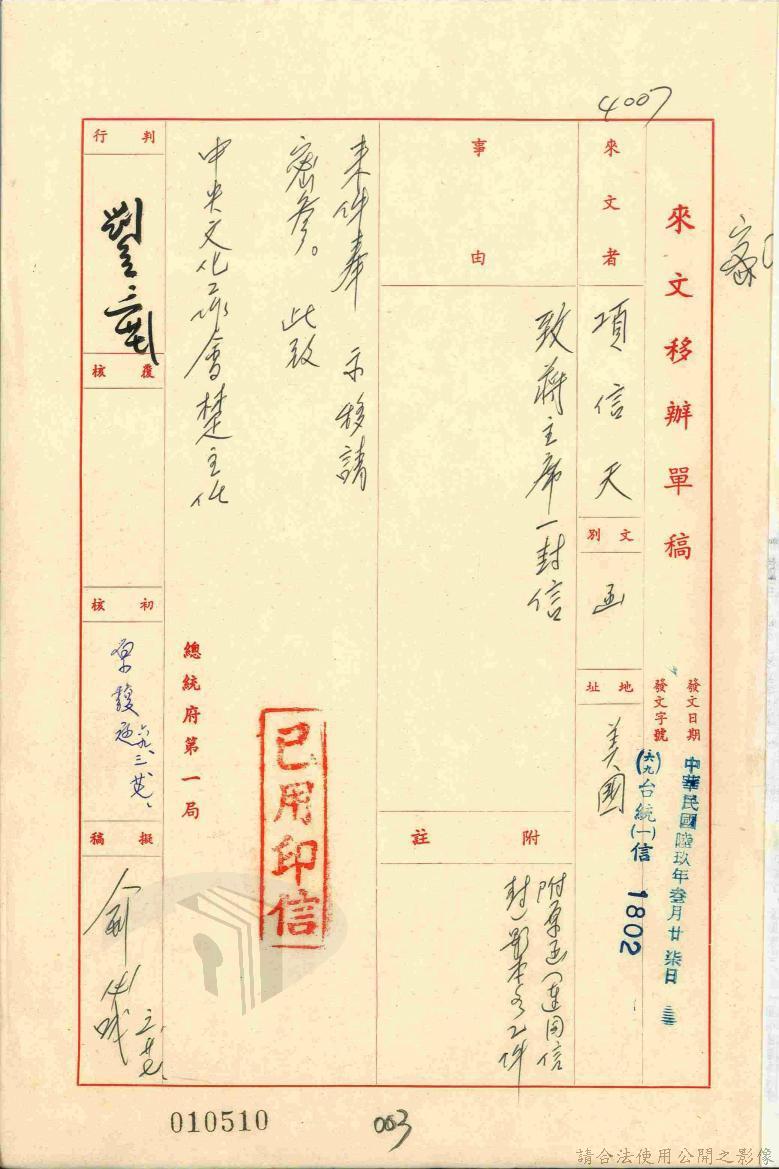 4007
密
來文移辦單稿
發文日期
中華民國陸玖年叁月廿柒日
發文字號
(六九)台統(一)信 1802
來文者
項信天
文別
函
地址
美國
事由
致蔣主席一封信
附註
附原函(連同信
封)影本各乙件
來件奉 示移請
密參。 此致
中央文化工作會楚主任
總統府第一局
已用印信
判行
覆核
初核
六九、三、廿七、
擬稿
三、廿七、
010510
003
請合法使用公開之影像